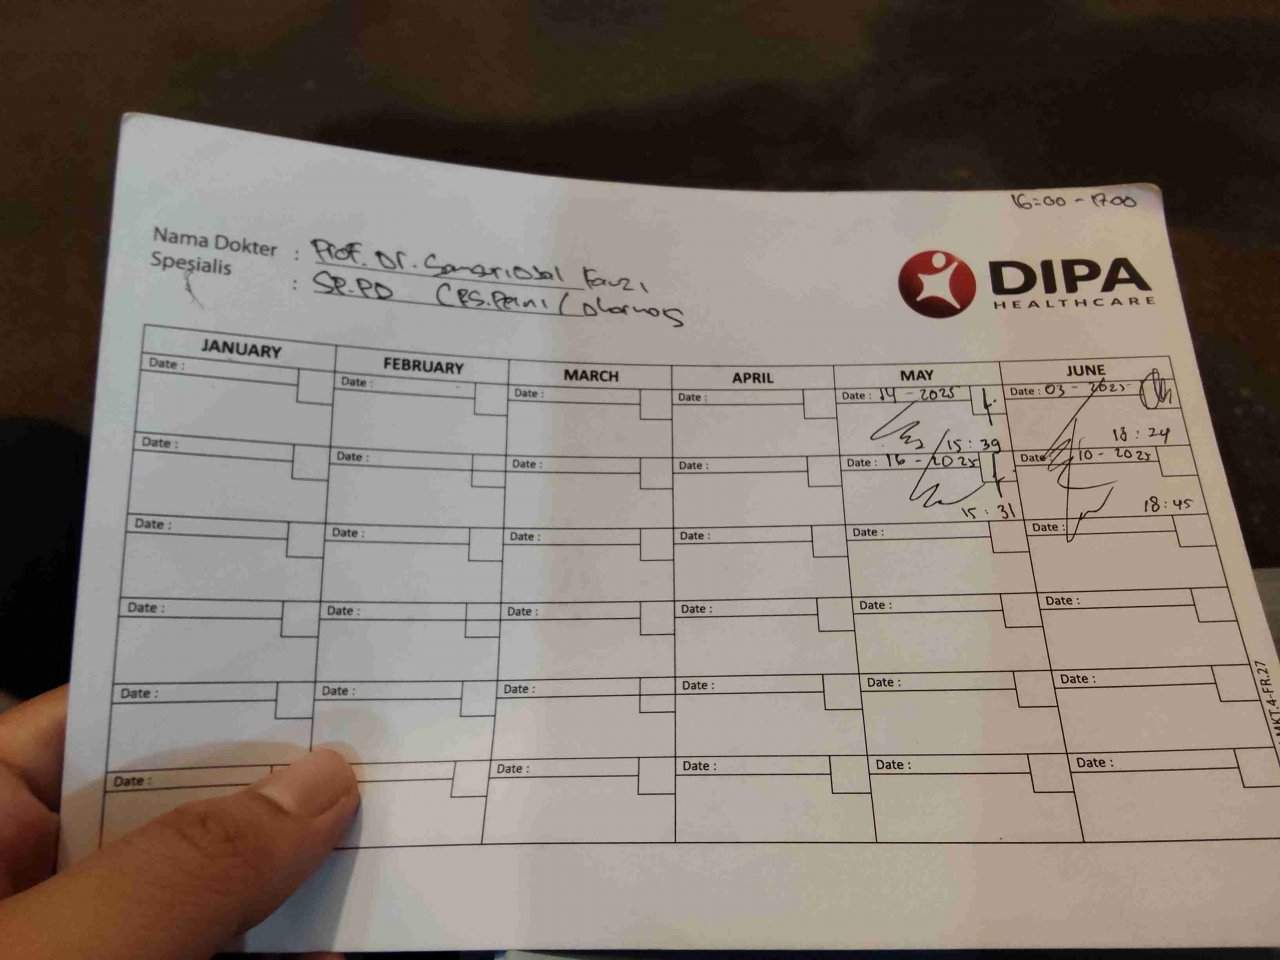 16:00 - 17.00
Nama Dokter : Prof. Dr. Fauzi
Spesialis : SP.PD
DIPA
HEALTHCARE
JANUARY FEBRUARY MARCH APRIL MAY JUNE
Date : Date : Date : Date : Date : 14 - 2025 Date : 03 - 2025
15 : 39 18 : 24
Date : Date : Date : Date : Date : 16 - 2025 Date 10 - 2025
15 : 31 18 : 45
Date : Date : Date : Date : Date : Date :
Date : Date : Date : Date : Date : Date :
Date : Date : Date : Date : Date : Date :
Date : Date : Date : Date : Date :
MKT.4-FR.27